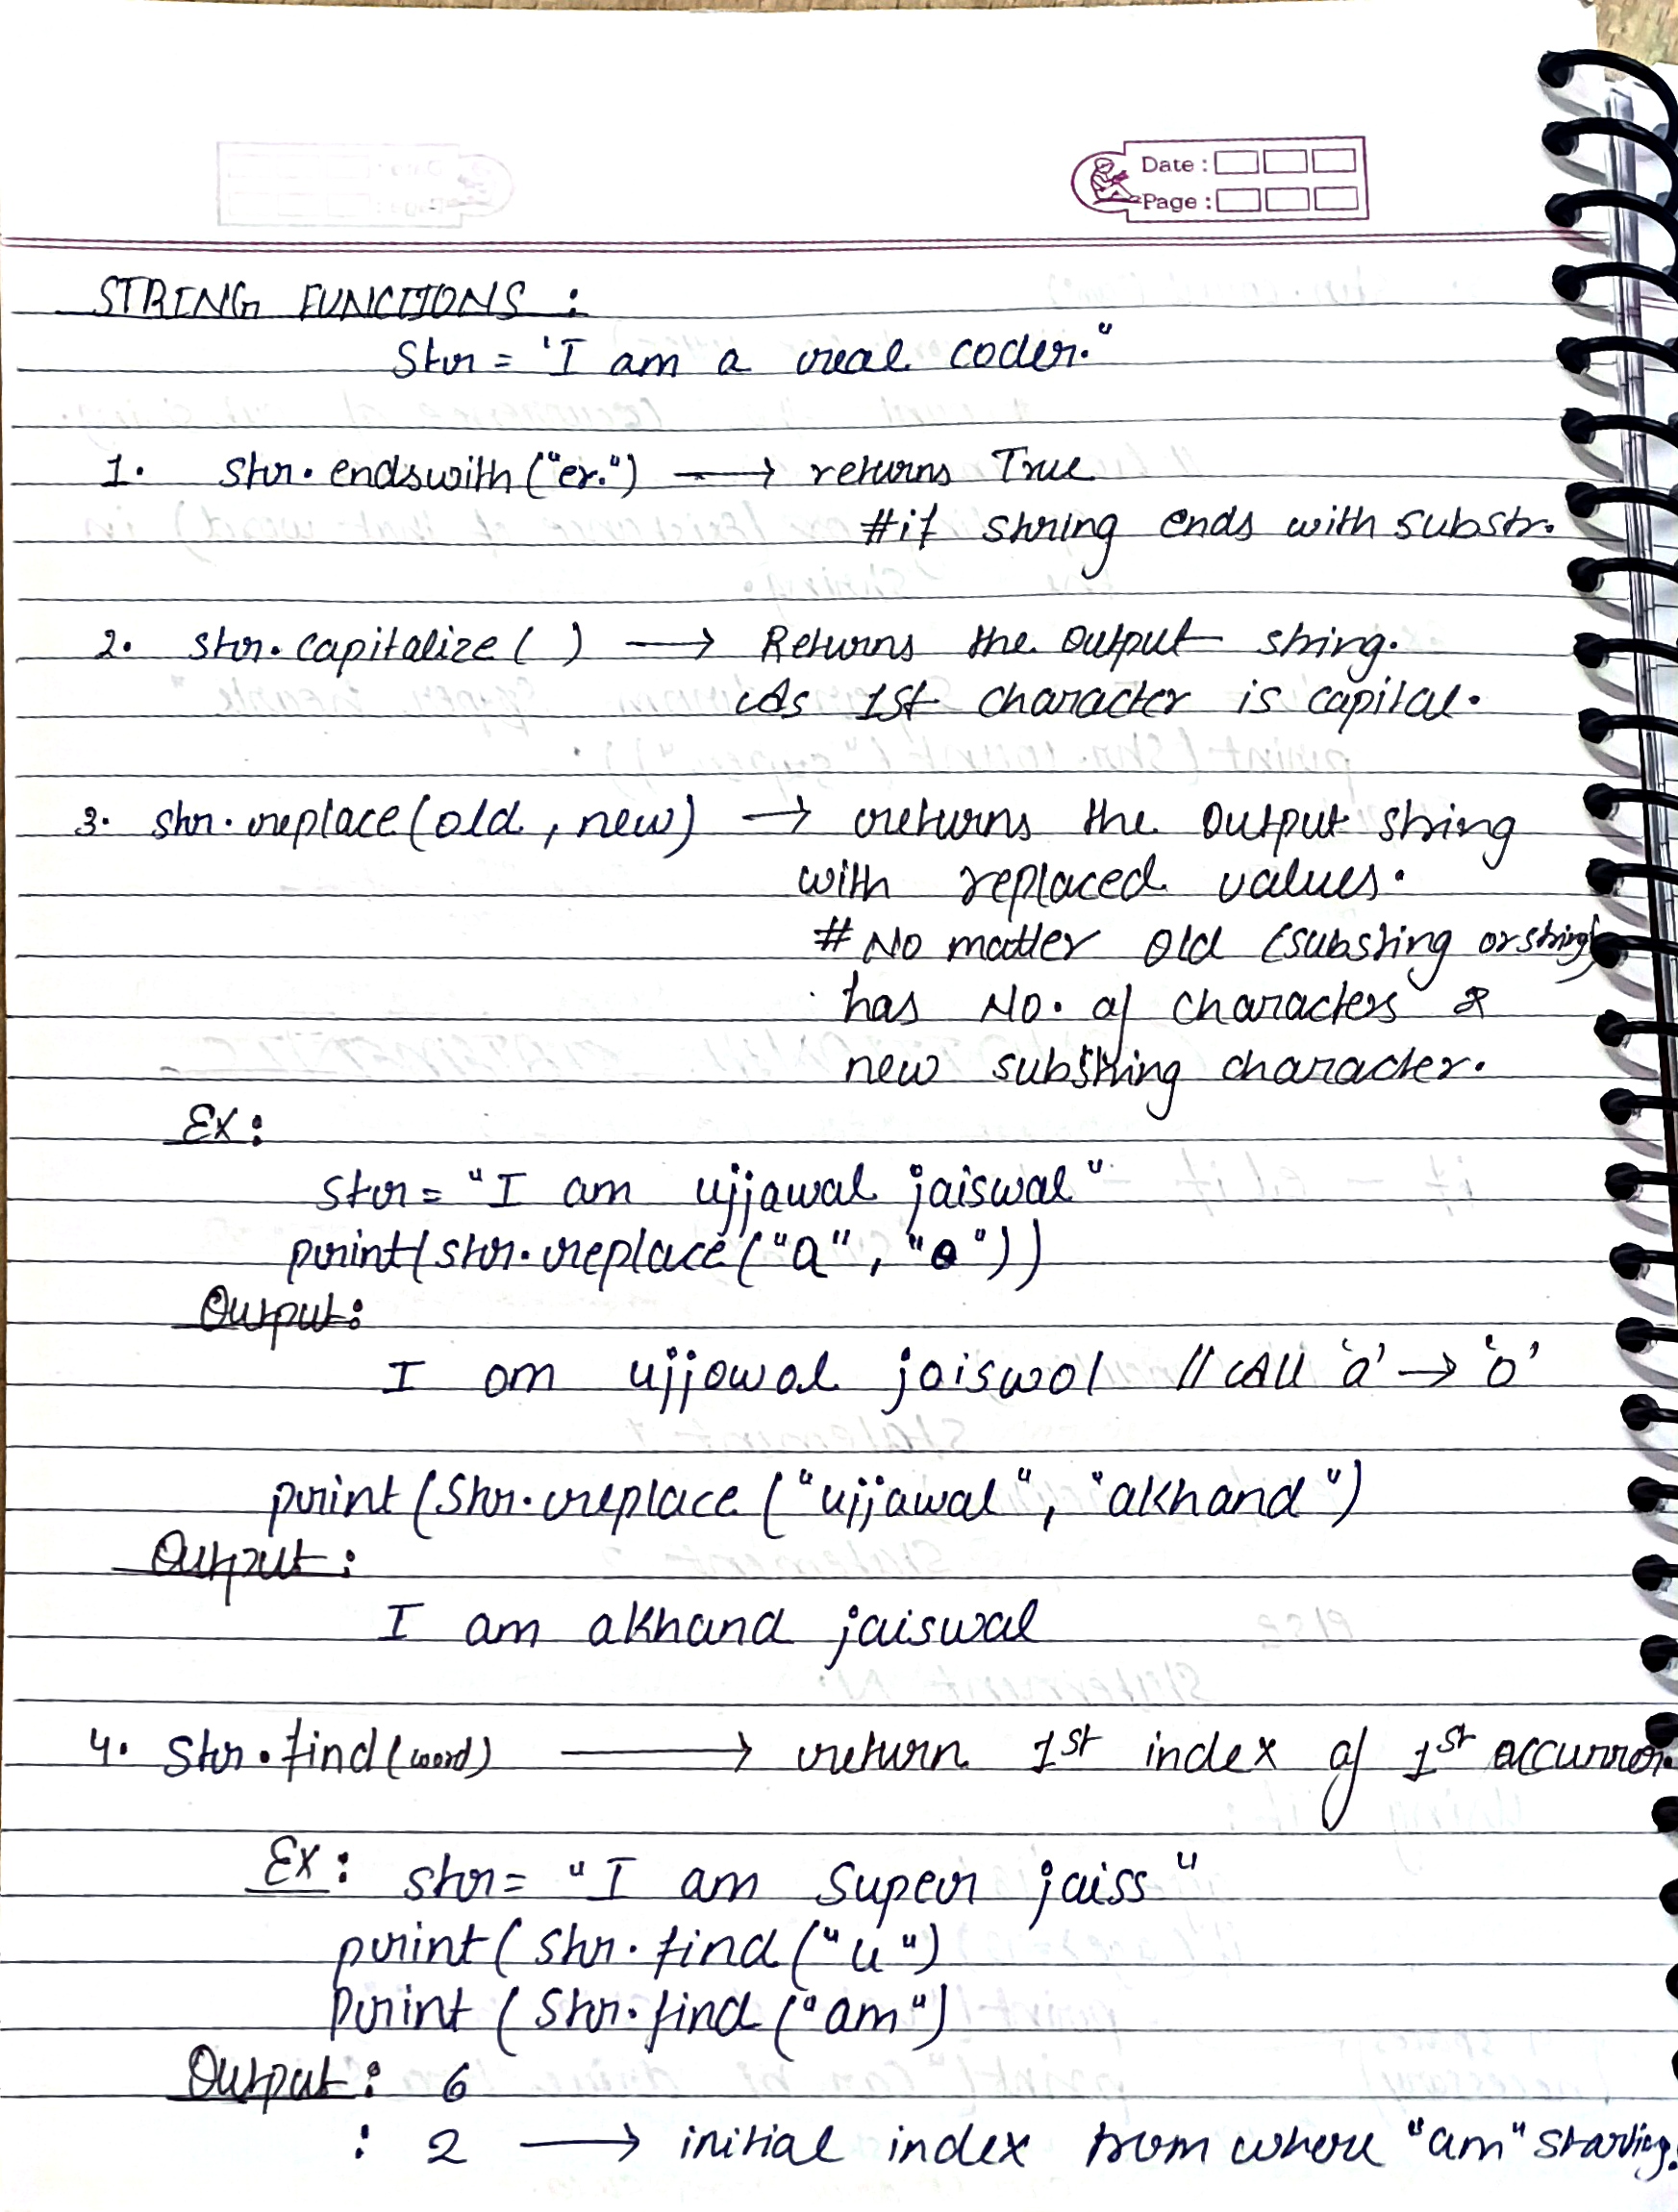 Date :
Page :
STRING FUNCTIONS :
Str = 'I am a real coder."
1. str. endswith ("er.") → returns True
#if string ends with substr.
2. str. capitalize ( ) → Returns the output string.
As 1st character is capital.
3. str. replace (old , new) → returns the output string
with replaced values.
# No matter old (substing or string)
has No. of characters &
new substring character.
Ex :
str = "I am ujjawal jaiswal"
print(str. replace ("a" , "o"))
Output :
I om ujjowol joiswol // All 'a' → 'o'
print (str. replace ("ujjawal" , "akhand")
Output :
I am akhand jaiswal
4. str. find (word) → return 1st index of 1st occurren.
Ex : str = "I am Super jaiss"
print ( str. find ("u")
print ( str. find ("am")
Output : 6
: 2 → initial index from where "am" starting.